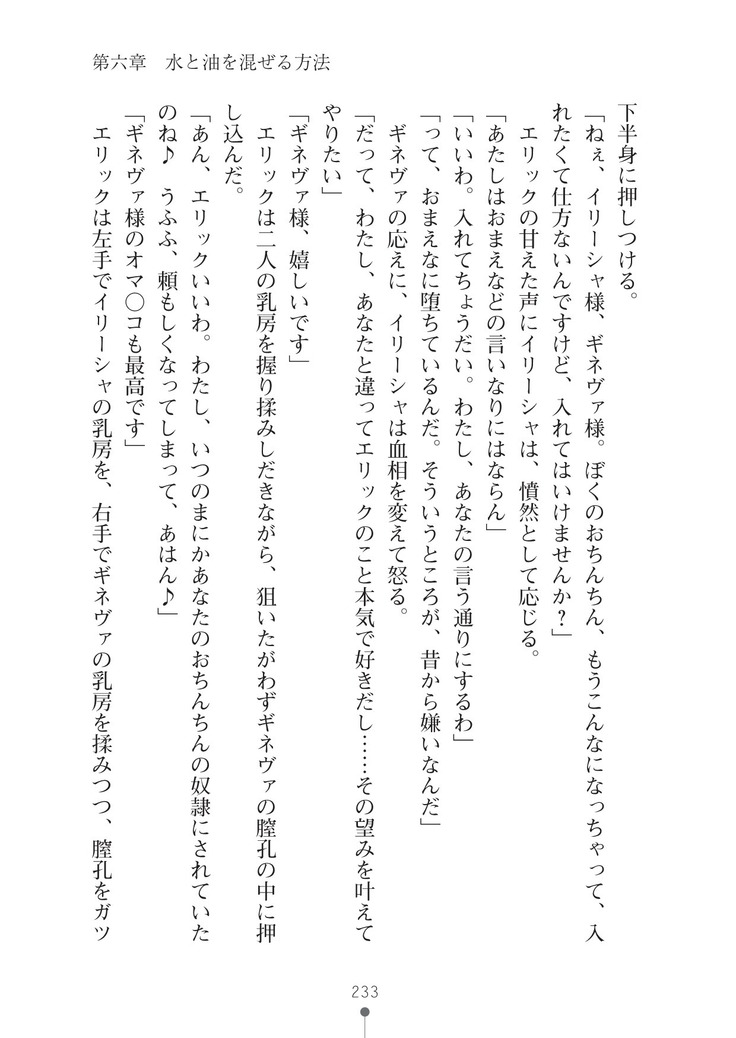 第六章　水と油を混ぜる方法
下半身に押しつける。
「ねぇ、イリーシャ様、ギネヴァ様。ぼくのおちんちん、もうこんなになっちゃって、入
れたくて仕方ないんですけど、入れてはいけませんか？」
エリックの甘えた声にイリーシャは、憤然として応じる。
「あたしはおまえなどの言いなりにはならん」
「いいわ。入れてちょうだい。わたし、あなたの言う通りにするわ」
「って、おまえなに堕ちているんだ。そういうところが、昔から嫌いなんだ」
ギネヴァの応えに、イリーシャは血相を変えて怒る。
「だって、わたし、あなたと違ってエリックのこと本気で好きだし……その望みを叶えて
やりたい」
「ギネヴァ様、嬉しいです」
エリックは二人の乳房を握り揉みしだきながら、狙いたがわずギネヴァの膣孔の中に押
し込んだ。
「あん、エリックいいわ。わたし、いつのまにかあなたのおちんちんの奴隷にされていた
のね♪　うふふ、頼もしくなってしまって、あはん♪」
「ギネヴァ様のオマ〇コも最高です」
エリックは左手でイリーシャの乳房を、右手でギネヴァの乳房を揉みつつ、膣孔をガツ
233